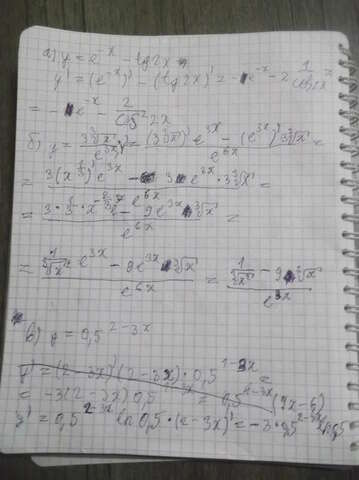 а) y = e^-x - tg2x
y' = (e^-x)' - (tg2x)' = -e^-x - 2 1/cos²2x
= -e^-x - 2/cos²2x
б) y = 3∛x/e^3x; y' = ((3∛x)' e^3x - (e^3x)' 3∛x)/e^6x =
= (3(x^1/3)' e^3x - 3e^3x · 3∛x)/e^6x =
= (3 · 1/3 · x^-2/3 e^3x - 9e^3x ∛x)/e^6x =
= (1/∛x² e^3x - 9e^3x ∛x)/e^6x = (1/∛x² - 9∛x)/e^3x
в) y = 0,5^2-3x
y' = 0,5^2-3x ln0,5 · (2-3x)' = -3 · 0,5^2-3x ln0,5